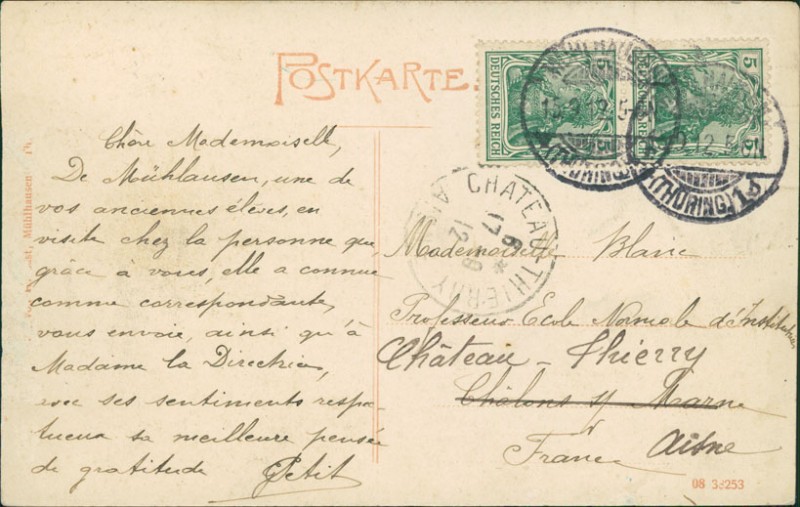 POSTKARTE
5 DEUTSCHES REICH 5
5 DEUTSCHES REICH 5
MÜHLHAUSEN
(THÜRING.) 1d
CHATEAU-THIERRY
17
9
12
AISNE
Chère Mademoiselle,
De Mühlausen, une de
vos anciennes élèves, en
visite chez la personne que,
grâce à vous, elle a connue
comme correspondante,
vous envoie, ainsi qu'à
Madame la Directrice,
avec ses sentiments respec-
tueux sa meilleure pensée
de gratitude Petit
Mademoiselle Blanc
Professeur Ecole Normale d'Institutrices
Château-Thierry
Châlons s/ Marne
Aisne
France
Mühlhausen i. Th.
08 38253